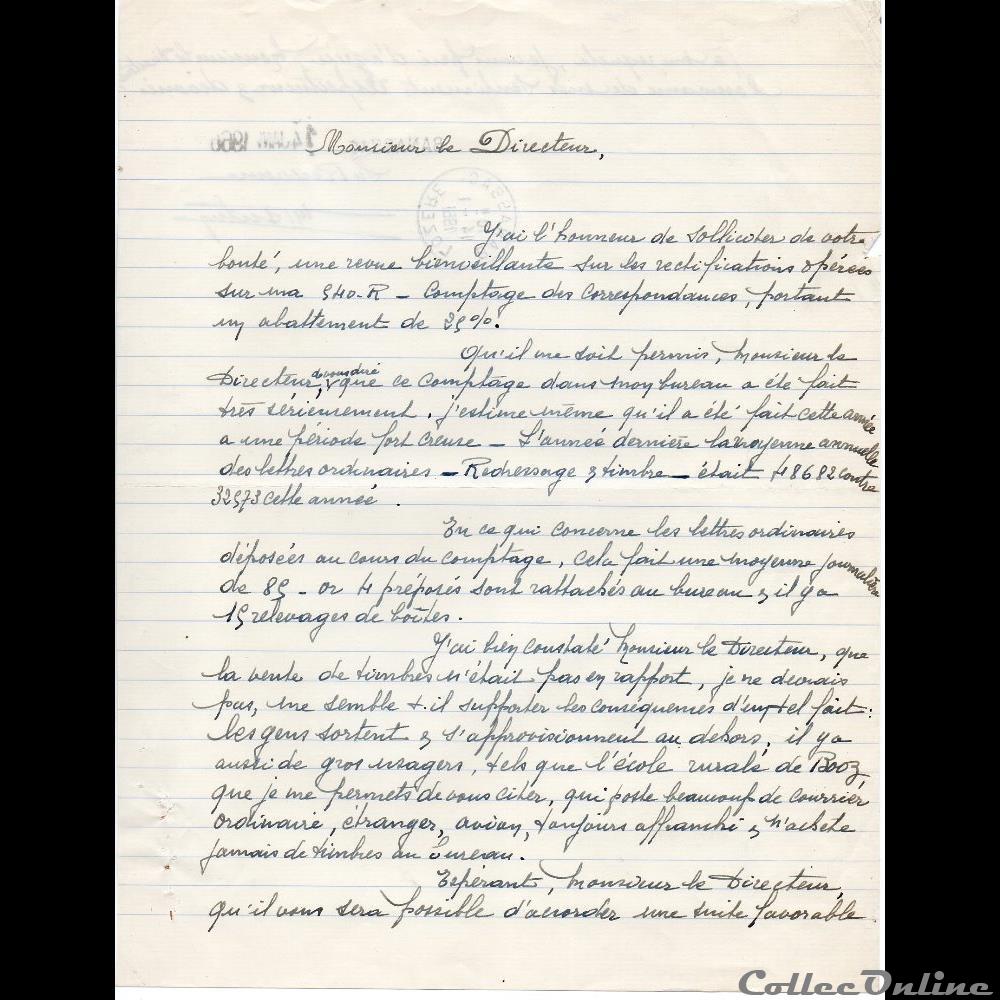 Monsieur le Directeur,
J'ai l'honneur de solliciter de votre
bonté, une revue bienveillante sur les rectifications opérées
sur ma 540-R - Comptage des correspondances, portant
un abattement de 25%.
Qu'il me soit permis, Monsieur le
Directeur, de vous dire que ce comptage dans mon bureau a été fait
très sérieusement. J'estime même qu'il a été fait cette année
a une période fort creuse - L'année dernière la moyenne annuelle
des lettres ordinaires - Redressage & timbre - était 48682 contre
32573 cette année.
En ce qui concerne les lettres ordinaires
déposées au cours du comptage, cela fait une moyenne journalière
de 85 - or 4 préposés sont rattachés au bureau & il y a
15 relevages de boîtes.
J'ai bien constaté Monsieur le Directeur, que
la vente de timbres n'était pas en rapport, je ne devrais
pas, me semble t-il supporter les conséquences d'un tel fait:
les gens sortent & s'approvisionnent au dehors, il y a
aussi de gros usagers, tels que l'école rurale de Booz,
que je me permets de vous citer, qui poste beaucoup de courrier
ordinaire, étranger, avion, toujours affranchi & n'achète
jamais de timbres au bureau.
Espérant, Monsieur le Directeur,
qu'il vous sera possible d'accorder une suite favorable
CollecOnline